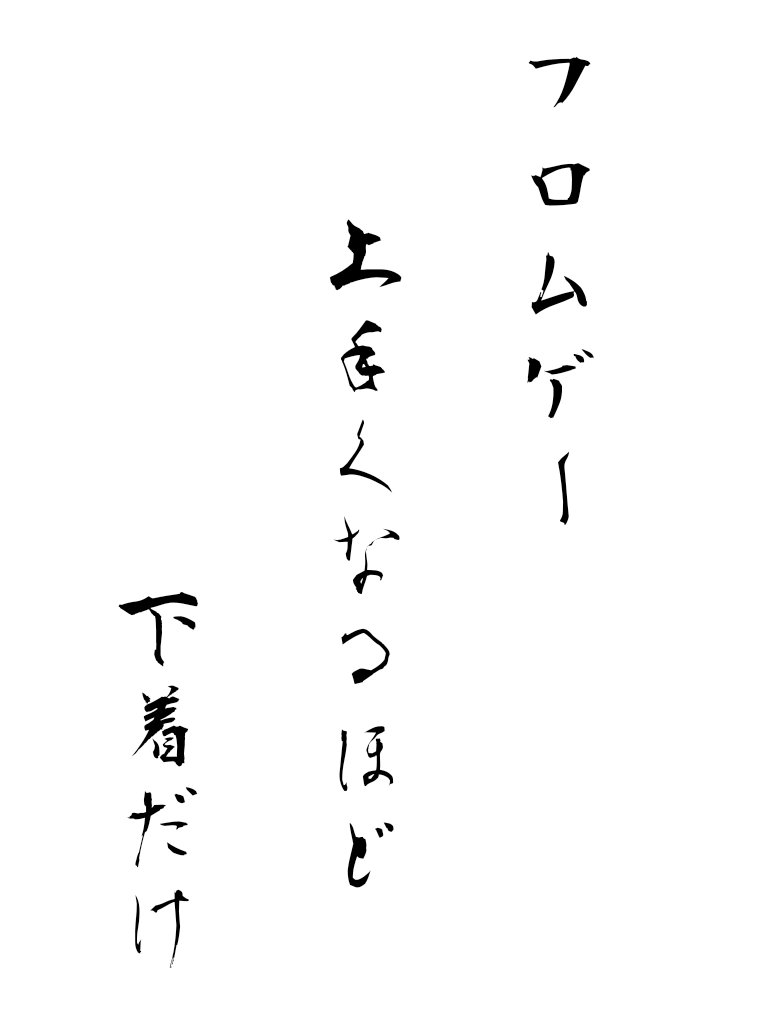 フロムゲー
上手くなるほど
下着だけ